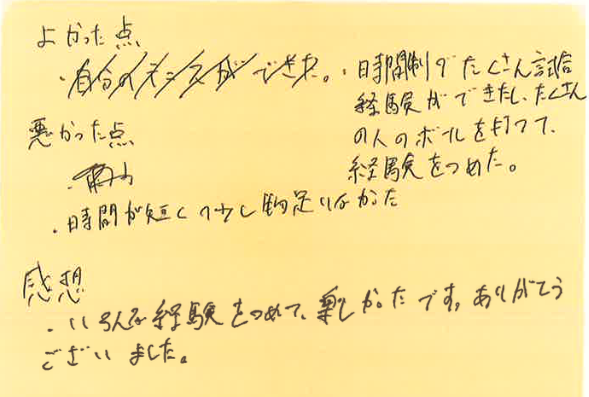 よかった点
・自分のテニスができた。
・時間制でたくさん試合
経験ができたし、たくさん
の人のボールを打つて、
経験をつめた。
悪かった点
・時間が短くて少し物足りなかた
感想
・いろんな経験をつめて、楽しかったです。ありがとう
ございました。